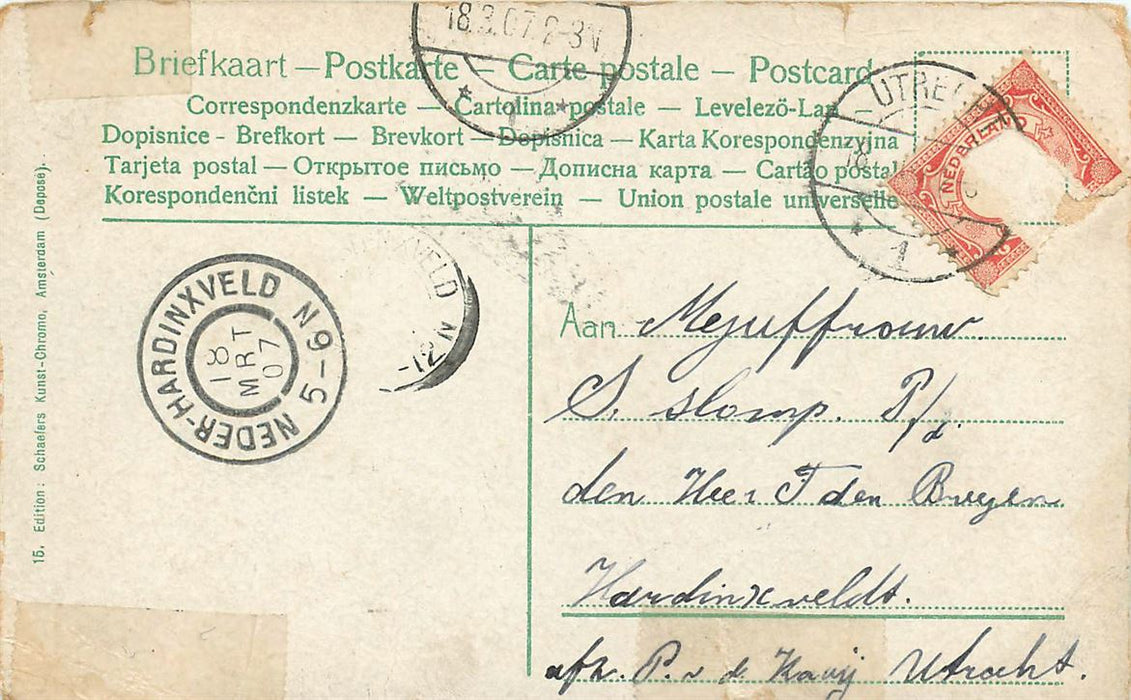 18.3.07.2-3N
1
Briefkaart — Postkarte — Carte postale — Postcard
Correspondenzkarte — Cartolina postale — Levelezö-Lap —
Dopisnice - Brefkort — Brevkort — Dopisnica — Karta Korespondenzyjna
Tarjeta postal — Открытое письмо — Дописна карта — Cartao postal
Korespondenčni listek — Weltpostverein — Union postale universelle
UTRECH
18
1
NEDERLAND
NEDER-HARDINXVELD
18 MRT 07
5-9 N
VELD
-12 N
Aan Mejuffrouw
S. Slomp. P/d.
den Heer T den Breejen
Hardinxveldt.
afz. P. v d Kooij Utrecht.
15. Edition: Schaefers Kunst-Chromo, Amsterdam (Deposé).